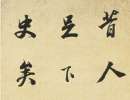 昔人
足下
史矣